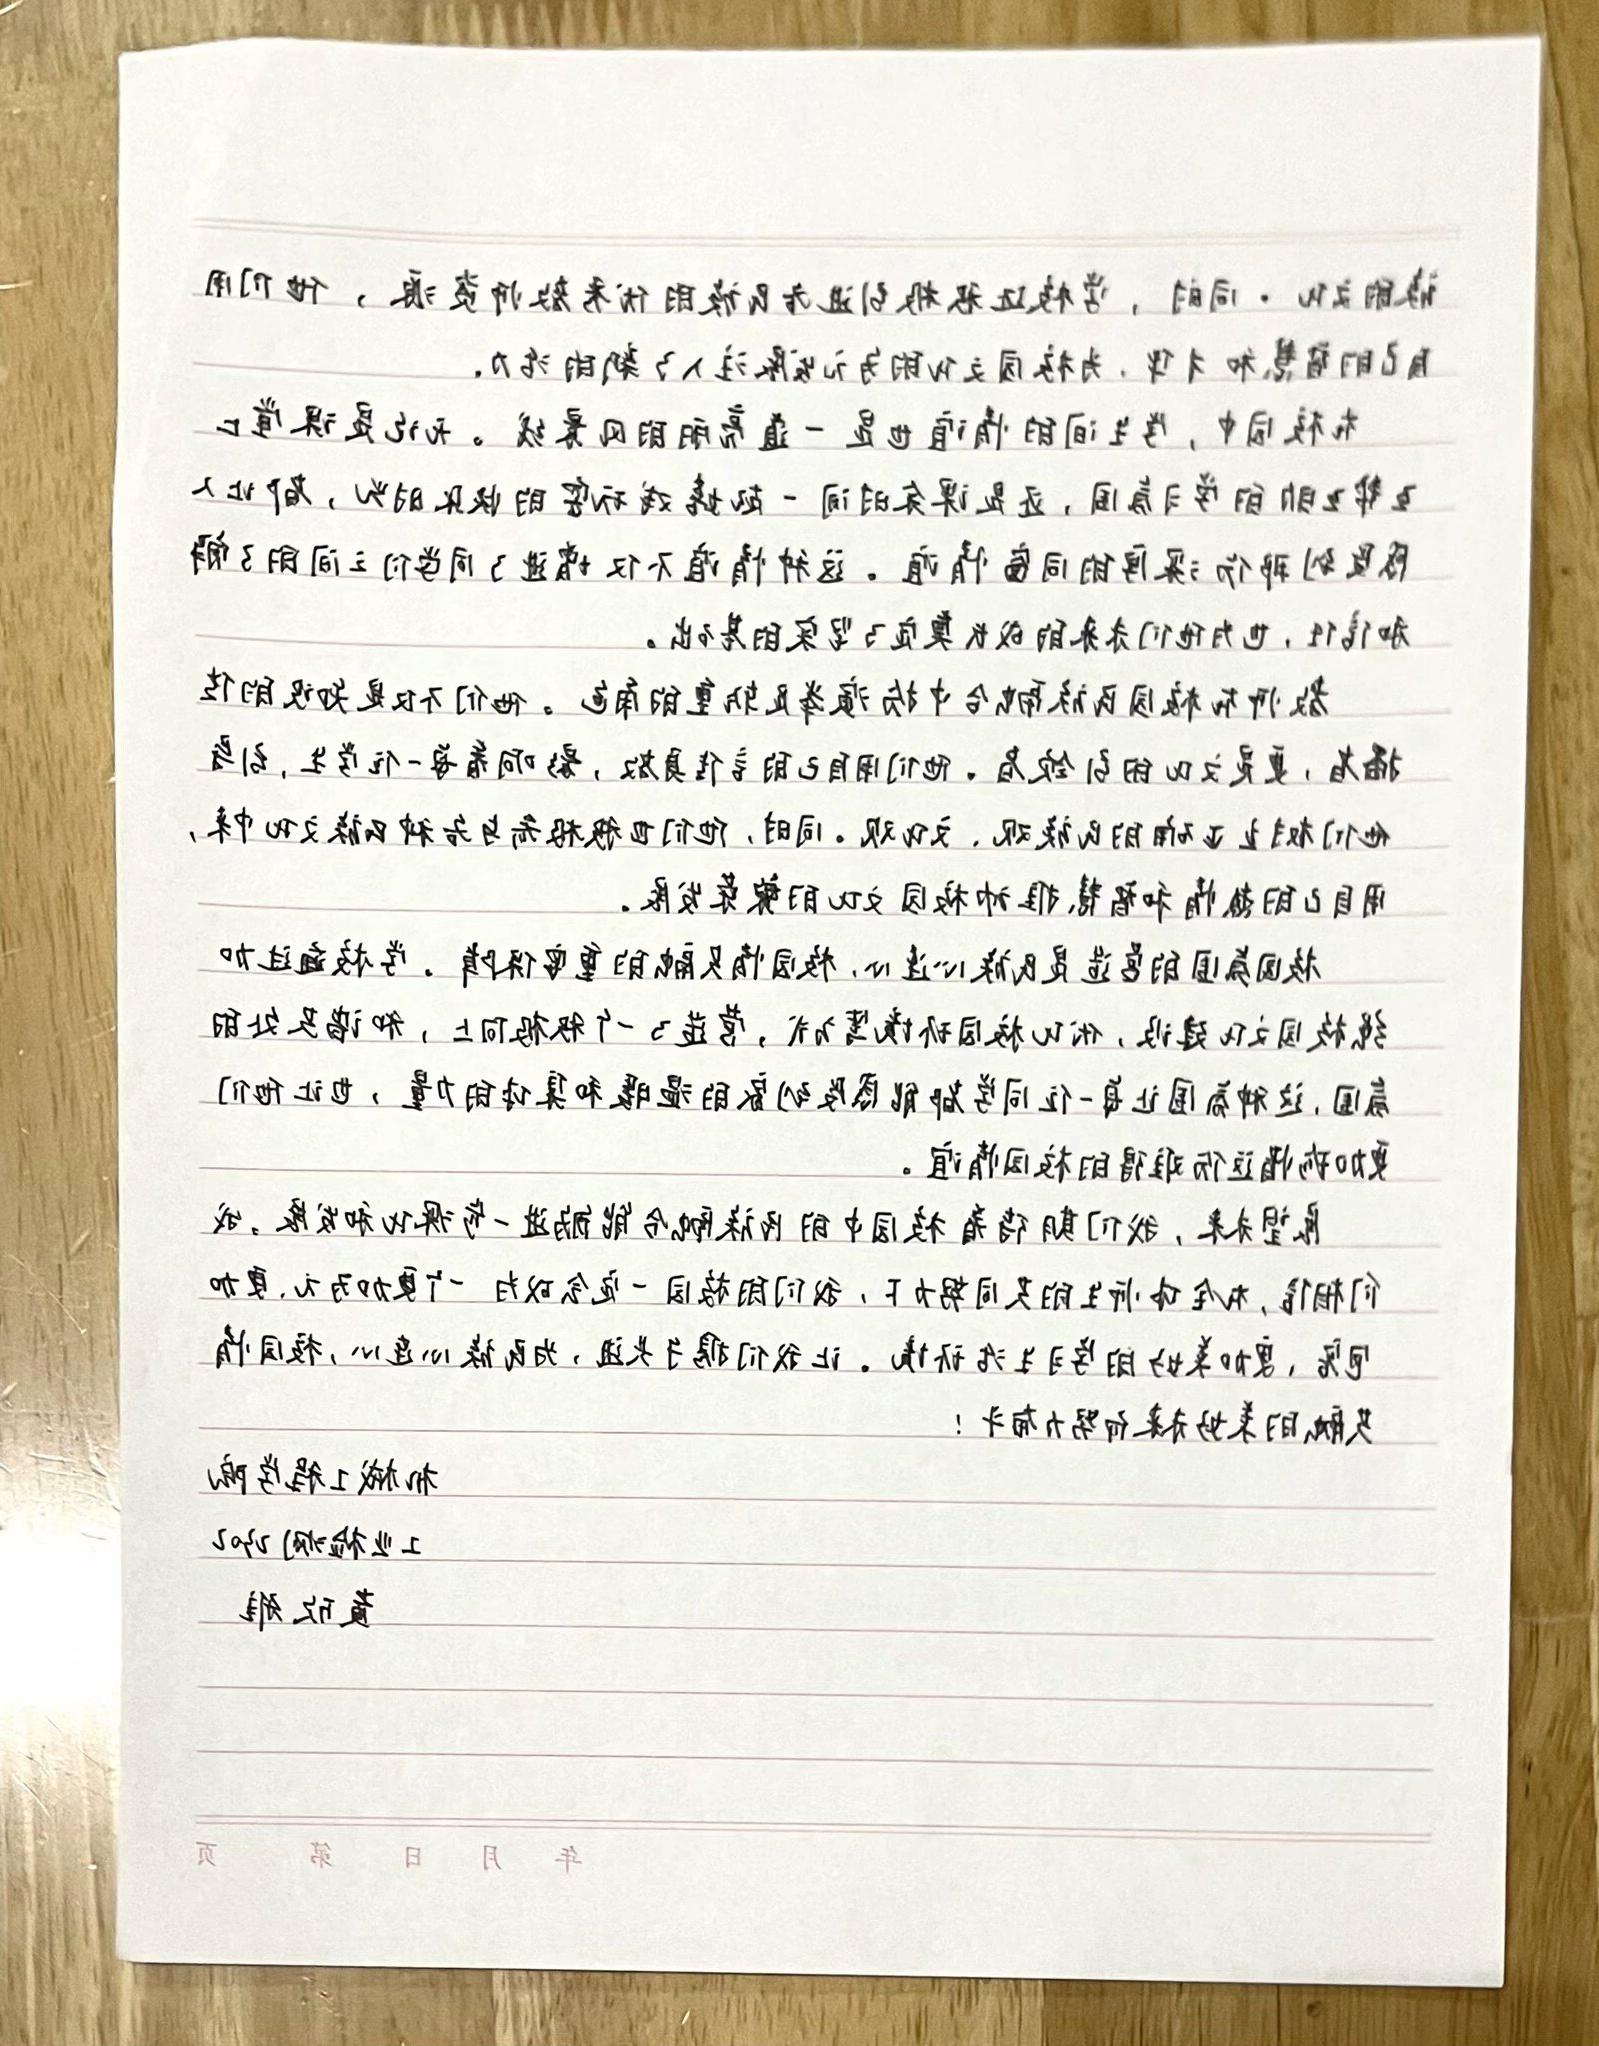 族的文化。同时，学校还积极引进各民族的优秀教师资源，他们用
自己的智慧和才华，为校园文化的多元发展注入了新的活力。
在校园中，学生间的情谊也是一道亮丽的风景线。无论是课堂上
互帮互助的学习氛围，还是课余时间一起嬉戏玩耍的快乐时光，都让人
感受到那份深厚的同窗情谊。这种情谊不仅增进了同学们之间的了解
和信任，也为他们未来的成长奠定了坚实的基础。
教师在校园民族融合中扮演举足轻重的角色。他们不仅是知识的传
播者，更是文化的引领者。他们用自己的言传身教，影响着每一位学生，引导
他们树立正确的民族观、文化观。同时，他们也积极参与各种民族文化中来，
用自己的热情和智慧推动校园文化的繁荣发展。
校园氛围的营造是民族心连心，校园情共融的重要保障。学校通过加
强校园文化建设，优化校园环境等方式，营造了一个积极向上，和谐共处的
氛围，这种氛围让每一位同学都能感受到家的温暖和集体的力量，也让他们
更加珍惜这份难得的校园情谊。
展望未来，我们期待着校园中的民族融合能够进一步深化和发展。我
们相信，在全体师生的共同努力下，我们的校园一定会成为一个更加多元、更加
包容，更加美好的学习生活环境。让我们携手共进，为民族心连心，校园情
共融的美好未来而努力奋斗！
机械工程学院
工业检测2402
黄欣雅
年 月 日 第 页